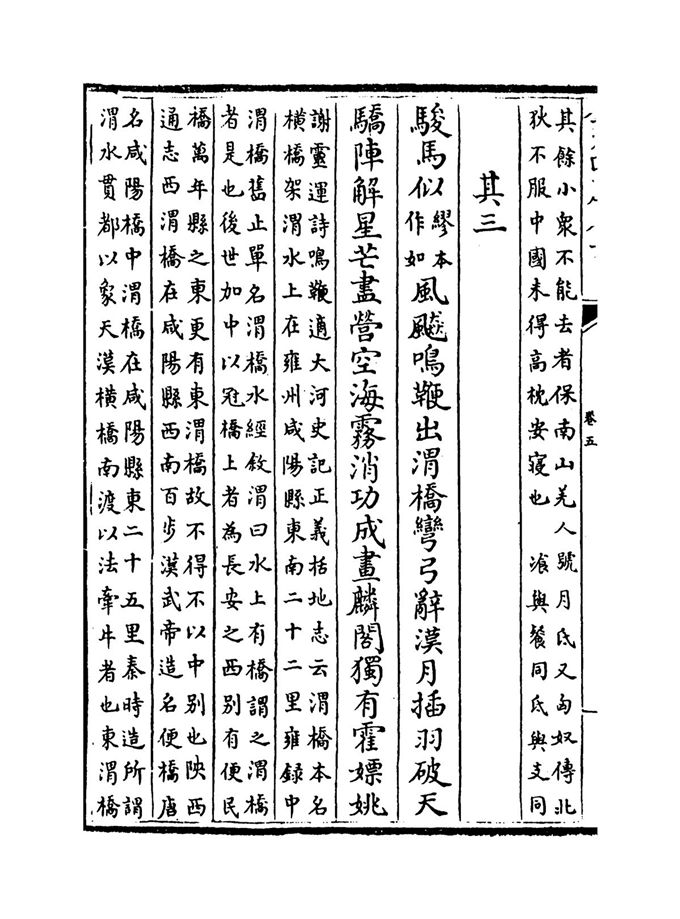 其餘小衆不能去者保南山羌人號月氐又匈奴傳北
狄不服中國未得高枕安寢也　飡與餐同氐與支同
卷五
其三
駿馬似繆本作如風飈鳴鞭出渭橋彎弓辭漢月插羽破天
驕陣解星芒盡營空海霧消功成畫麟閣獨有霍嫖姚
謝靈運詩鳴鞭適大河史記正義括地志云渭橋本名
橫橋架渭水上在雍州咸陽縣東南二十二里雍錄中
渭橋舊止單名渭橋水經敘渭曰水上有橋謂之渭橋
者是也後世加中以冠橋上者為長安之西别有便民
橋萬年縣之東更有東渭橋故不得不以中别也陜西
通志西渭橋在咸陽縣西南百步漢武帝造名便橋唐
名咸陽橋中渭橋在咸陽縣東二十五里秦時造所謂
渭水貫都以象天漢橫橋南渡以法牽牛者也東渭橋